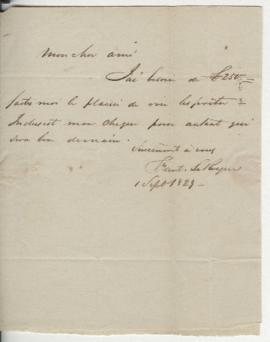 Mon cher ami
J'ai besoin de £250
faites moi le plaisir de me les prêter &
Inclus mon cheque pour autant qui
sera bon demain.
Sincèrement à vous
1 Sept 1829